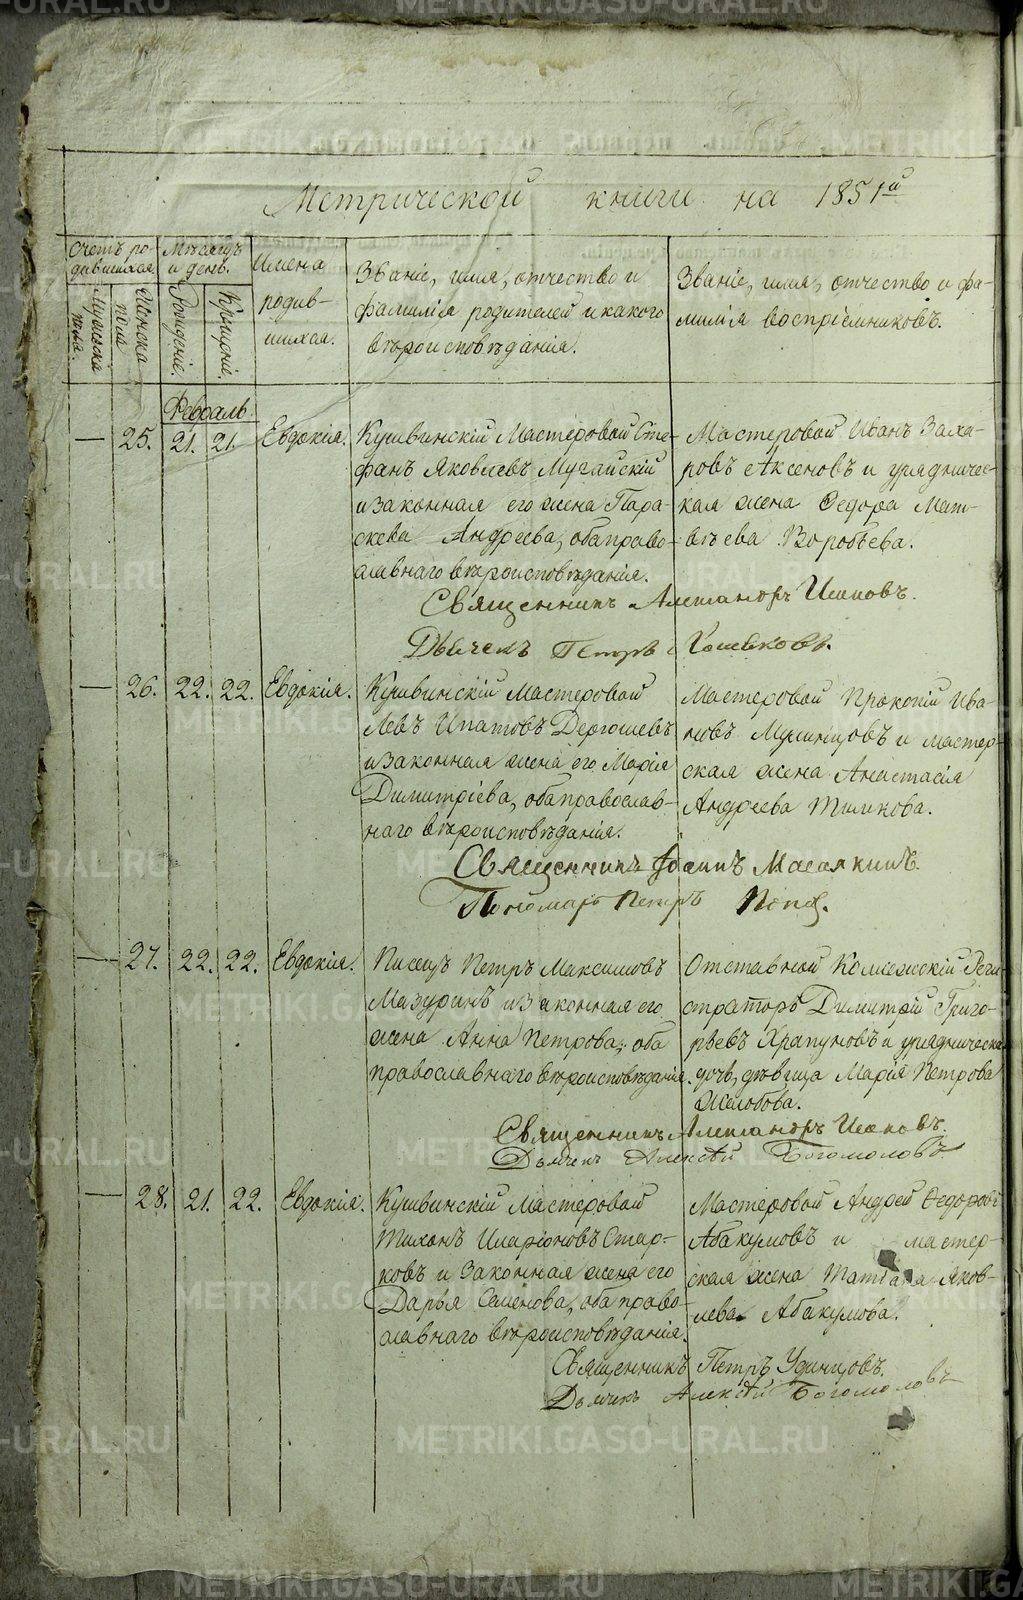 METRIKI.GASO-URAL.RU
Метрической книги на 1851й
Счетъ родившихся.
Мужеска пола.
Женска пола
Мѣсяцъ и день.
Рожденіе.
Крещеніе.
Имена родившихся.
Званіе, имя, отчество и
фамилія родителей и какого
вѣроисповѣданія.
Званіе, имя, отчество и фа-
милія воспріемниковъ.
Февраль.
— 25. 21. 21. Евдокія.
Кушвинскій Мастеровой Сте-
фанъ Яковлевъ Мугайскій
и законная его жена Пара-
скева Андреева, оба право-
славнаго вѣроисповѣданія.
Мастеровой Иванъ Заха-
ровъ Аксеновъ и урядничес-
кая жена Ѳедора Мат-
вѣева Воробьева.
Священникъ Александръ
Дьячекъ Петръ
— 26. 22. 22. Евдокія.
Кушвинскій мастеровой
Левъ Ипатовъ
и законная жена его Марія
Димитріева, оба православ-
наго вѣроисповѣданія.
Мастеровой Прокопій Ива-
новъ и мастер-
ская жена Анастасія
Андреева
Священникъ Іоаннъ
Пономарь Петръ
— 27. 22. 22. Евдокія.
Писецъ Петръ Максимовъ
Мазуринъ и законная его
жена Анна Петрова, оба
православнаго вѣроисповѣданія.
Отставной Колежскій Реги-
страторъ Димитрій Григо-
рьевъ Храпуновъ и урядническа
дочь, дѣвица Марія Петрова
Желобова.
Священникъ Александръ
Дьячекъ Алексѣй Богомоловъ
— 28. 21. 22. Евдокія.
Кушвинскій Мастеровой
Тихонъ Иларіоновъ Стар-
ковъ и законная жена его
Дарья Семенова, оба право-
славнаго вѣроисповѣданія.
Мастеровой Андрей Ѳедоровъ
Абакумовъ и мастер-
ская жена Татіана Яков-
лева Абакумова.
Священникъ Петръ Удинцовъ.
Дьячекъ Алексѣй Богомоловъ